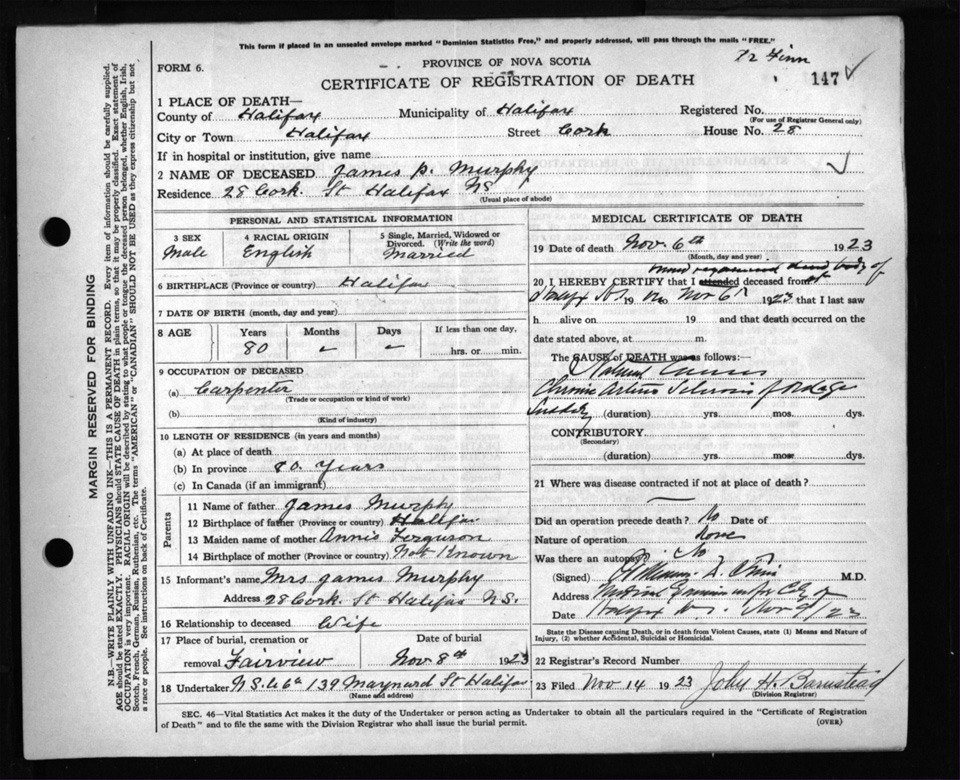 This form if placed in an unsealed envelope marked "Dominion Statistics Free," and properly addressed, will pass through the mails "FREE."
FORM 6.
PROVINCE OF NOVA SCOTIA
CERTIFICATE OF REGISTRATION OF DEATH
147
1 PLACE OF DEATH—
County of Halifax Municipality of Halifax Registered No.
(For use of Registrar General only)
City or Town Halifax Street Cork House No. 28
If in hospital or institution, give name
2 NAME OF DECEASED James P. Murphy
Residence 28 Cork St Halifax NS
(Usual place of abode)
PERSONAL AND STATISTICAL INFORMATION
3 SEX 4 RACIAL ORIGIN 5 Single, Married, Widowed or Divorced. (Write the word)
Male English Married
6 BIRTHPLACE (Province or country) Halifax
7 DATE OF BIRTH (month, day and year)
8 AGE Years Months Days If less than one day,
80 – – hrs. or min.
9 OCCUPATION OF DECEASED
(a) Carpenter
(Trade or occupation or kind of work)
(b)
(Kind of industry)
10 LENGTH OF RESIDENCE (in years and months)
(a) At place of death
(b) In province 80 Years
(c) In Canada (if an immigrant)
Parents
11 Name of father James Murphy
12 Birthplace of father (Province or country) Halifax
13 Maiden name of mother Annie Ferguson
14 Birthplace of mother (Province or country) Not Known
15 Informant's name Mrs James Murphy
Address 28 Cork St Halifax N.S.
16 Relationship to deceased Wife
17 Place of burial, cremation or Date of burial
removal Fairview Nov 8th 1923
18 Undertaker N.S. U Co 139 Maynard St Halifax
(Name and address)
MEDICAL CERTIFICATE OF DEATH
19 Date of death Nov. 6th 1923
(Month, day and year)
dead body of
20 I HEREBY CERTIFY that I attended deceased from
19 to Nov 6 1923 that I last saw
h alive on 19 and that death occurred on the
date stated above, at m.
The CAUSE OF DEATH was as follows:—
Natural Causes
Chronic Arterio Sclerosis
(duration) yrs. mos. dys.
CONTRIBUTORY
(Secondary)
(duration) yrs. mos. dys.
21 Where was disease contracted if not at place of death?
Did an operation precede death? No Date of
Nature of operation none
Was there an autopsy? No
(Signed) M.D.
Address Medical Examiner for City of
Date Halifax Nov 9/23
State the Disease causing Death, or in death from Violent Causes, state (1) Means and Nature of
Injury, (2) whether Accidental, Suicidal or Homicidal.
22 Registrar's Record Number
23 Filed Nov 14 1923 John H. Barnstead
(Division Registrar)
SEC. 46—Vital Statistics Act makes it the duty of the Undertaker or person acting as Undertaker to obtain all the particulars required in the "Certificate of Registration
of Death" and to file the same with the Division Registrar who shall issue the burial permit.
(OVER)
MARGIN RESERVED FOR BINDING
N.B.—WRITE PLAINLY WITH UNFADING INK—THIS IS A PERMANENT RECORD. Every item of information should be carefully supplied.
AGE should be stated EXACTLY. PHYSICIANS should STATE CAUSE OF DEATH in plain terms, so that it may be properly classified. Exact statement of
OCCUPATION is very important. RACIAL ORIGIN will be described by stating to what people or tongue the deceased person belonged, whether English, Irish,
Scotch, French, German, Russian, Ruthenian, etc. The terms "AMERICAN" or "CANADIAN" SHOULD NOT BE USED as they express citizenship but not
a race or people. See instructions on back of Certificate.